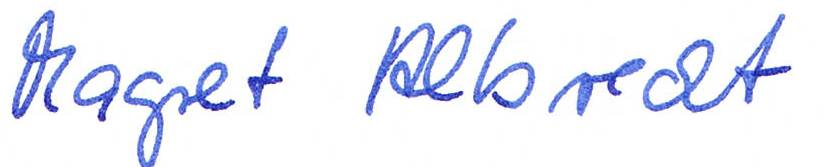 Magret Albrecht